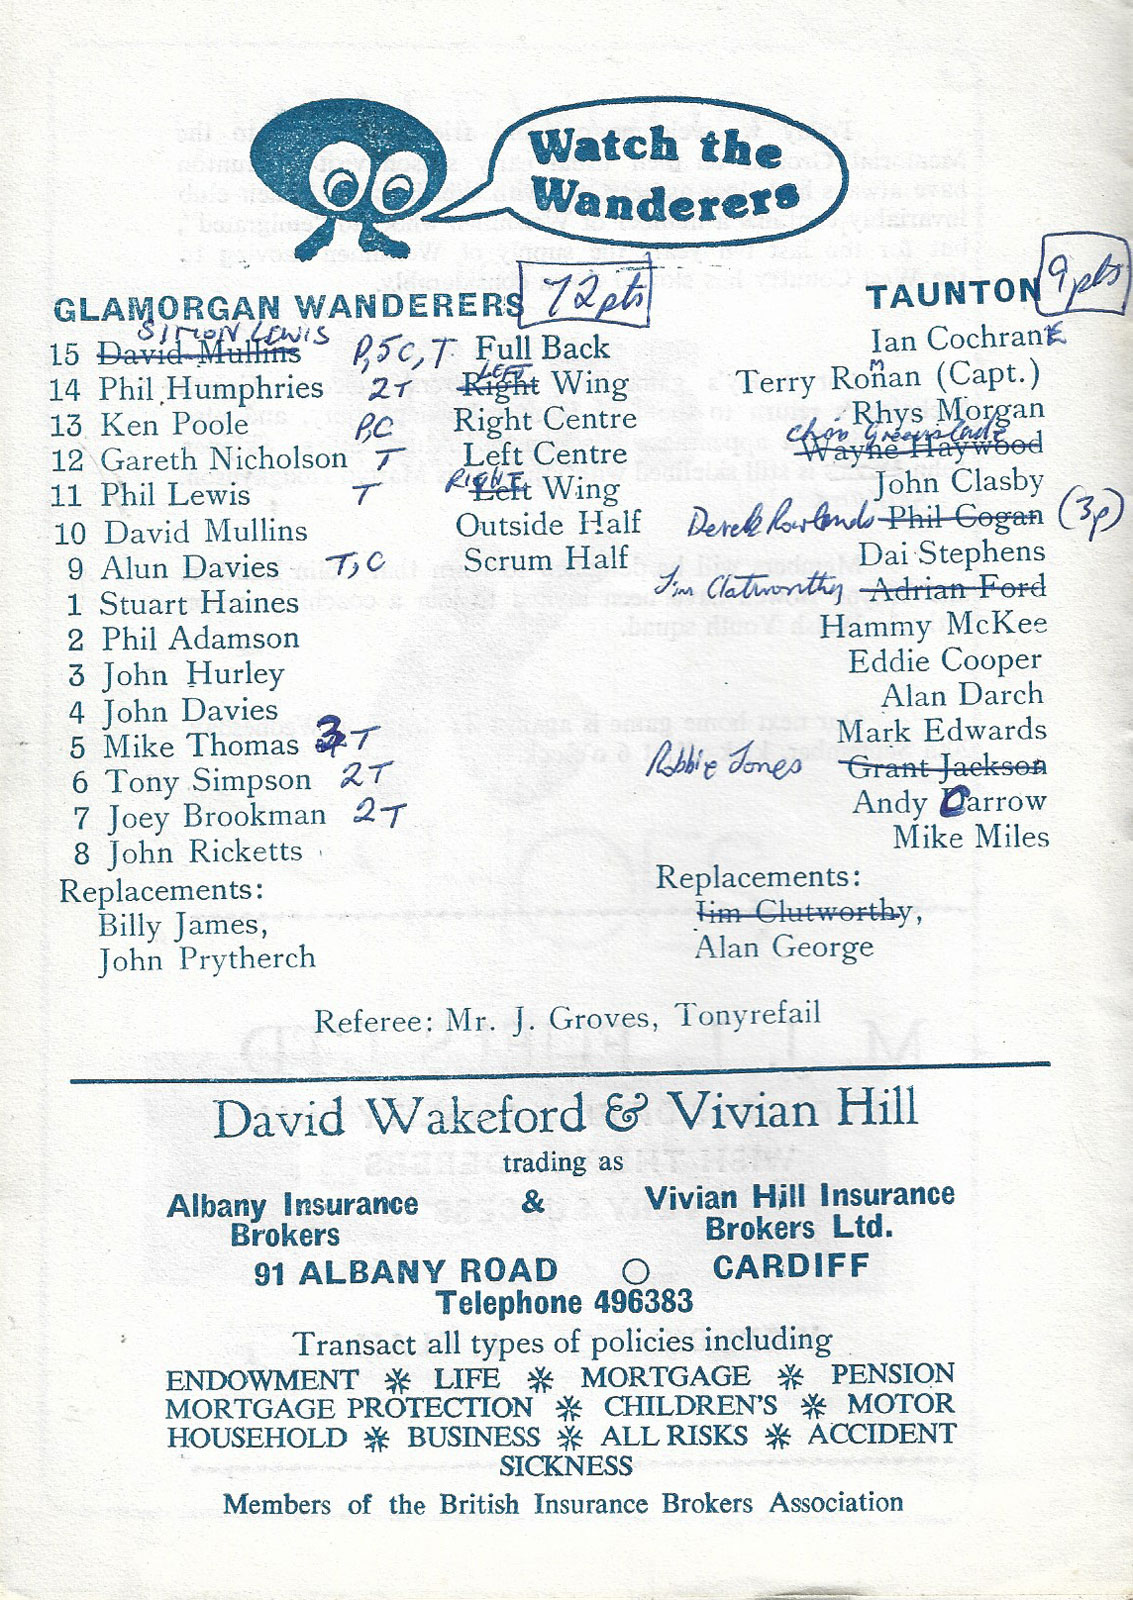 Watch the
Wanderers
GLAMORGAN WANDERERS 72 pts TAUNTON 9 pts
SIMON LEWIS
15 David Mullins P, 5C, T Full Back Ian CochranE
LEFT
14 Phil Humphries 2T Right Wing Terry Ronan (Capt.)
m
13 Ken Poole P,C Right Centre Rhys Morgan
12 Gareth Nicholson T Left Centre Wayne Haywood
RIGHT
11 Phil Lewis T Left Wing John Clasby
10 David Mullins Outside Half Derek Rowlands Phil Cogan (3p)
9 Alun Davies T,C Scrum Half Dai Stephens
1 Stuart Haines Jim Clatworthy Adrian Ford
2 Phil Adamson Hammy McKee
3 John Hurley Eddie Cooper
4 John Davies Alan Darch
5 Mike Thomas 3T Mark Edwards
6 Tony Simpson 2T Robbie Jones Grant Jackson
7 Joey Brookman 2T Andy Carrow
8 John Ricketts Mike Miles
Replacements: Replacements:
Billy James, Jim Clutworthy,
John Prytherch Alan George
Referee: Mr. J. Groves, Tonyrefail
David Wakeford & Vivian Hill
trading as
Albany Insurance & Vivian Hill Insurance
Brokers Brokers Ltd.
91 ALBANY ROAD O CARDIFF
Telephone 496383
Transact all types of policies including
ENDOWMENT * LIFE * MORTGAGE * PENSION
MORTGAGE PROTECTION * CHILDREN'S * MOTOR
HOUSEHOLD * BUSINESS * ALL RISKS * ACCIDENT
SICKNESS
Members of the British Insurance Brokers Association